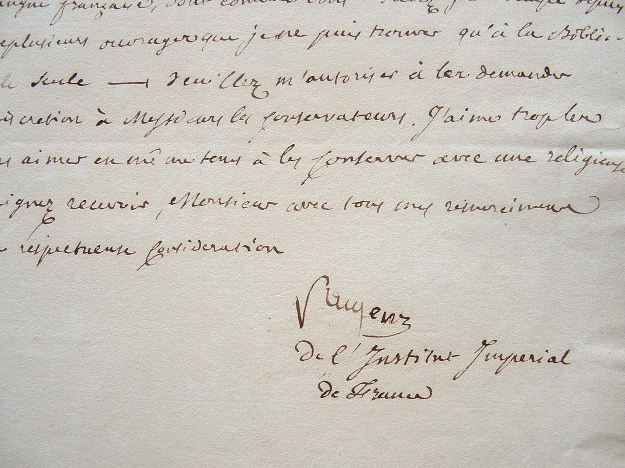 langue française, dont comme vous
plusieurs ouvrages que je ne puis trouver qu'à la Biblio-
seule — Veuillez m'autoriser à les demander
discretion à Messieurs les Conservateurs. J'aime trop les
aimer en même tems à les Conserver avec une religieuse
recevoir, Monsieur avec tous mes remerciments
respectueuse Consideration
De l'Institut Imperial
de France